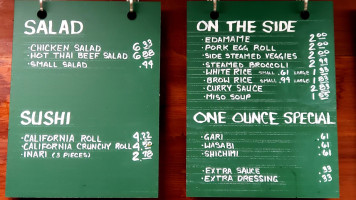 SALAD
·CHICKEN SALAD 6.33
·HOT THAI BEEF SALAD 6.68
·SMALL SALAD .99
SUSHI
·CALIFORNIA ROLL
·CALIFORNIA CRUNCHY ROLL
·INARI (3 PIECES) 2.78
ON THE SIDE
·EDAMAME
·PORK EGG ROLL
·SIDE STEAMED VEGGIES
·STEAMED BROCCOLI
·WHITE RICE SMALL .61 LARGE
·BROWN RICE SMALL .99 LARGE
·CURRY SAUCE
·MISO SOUP
ONE OUNCE SPECIAL
·GARI .61
·WASABI .61
·SHICHIMI .61
·EXTRA SAUCE .33
·EXTRA DRESSING .33